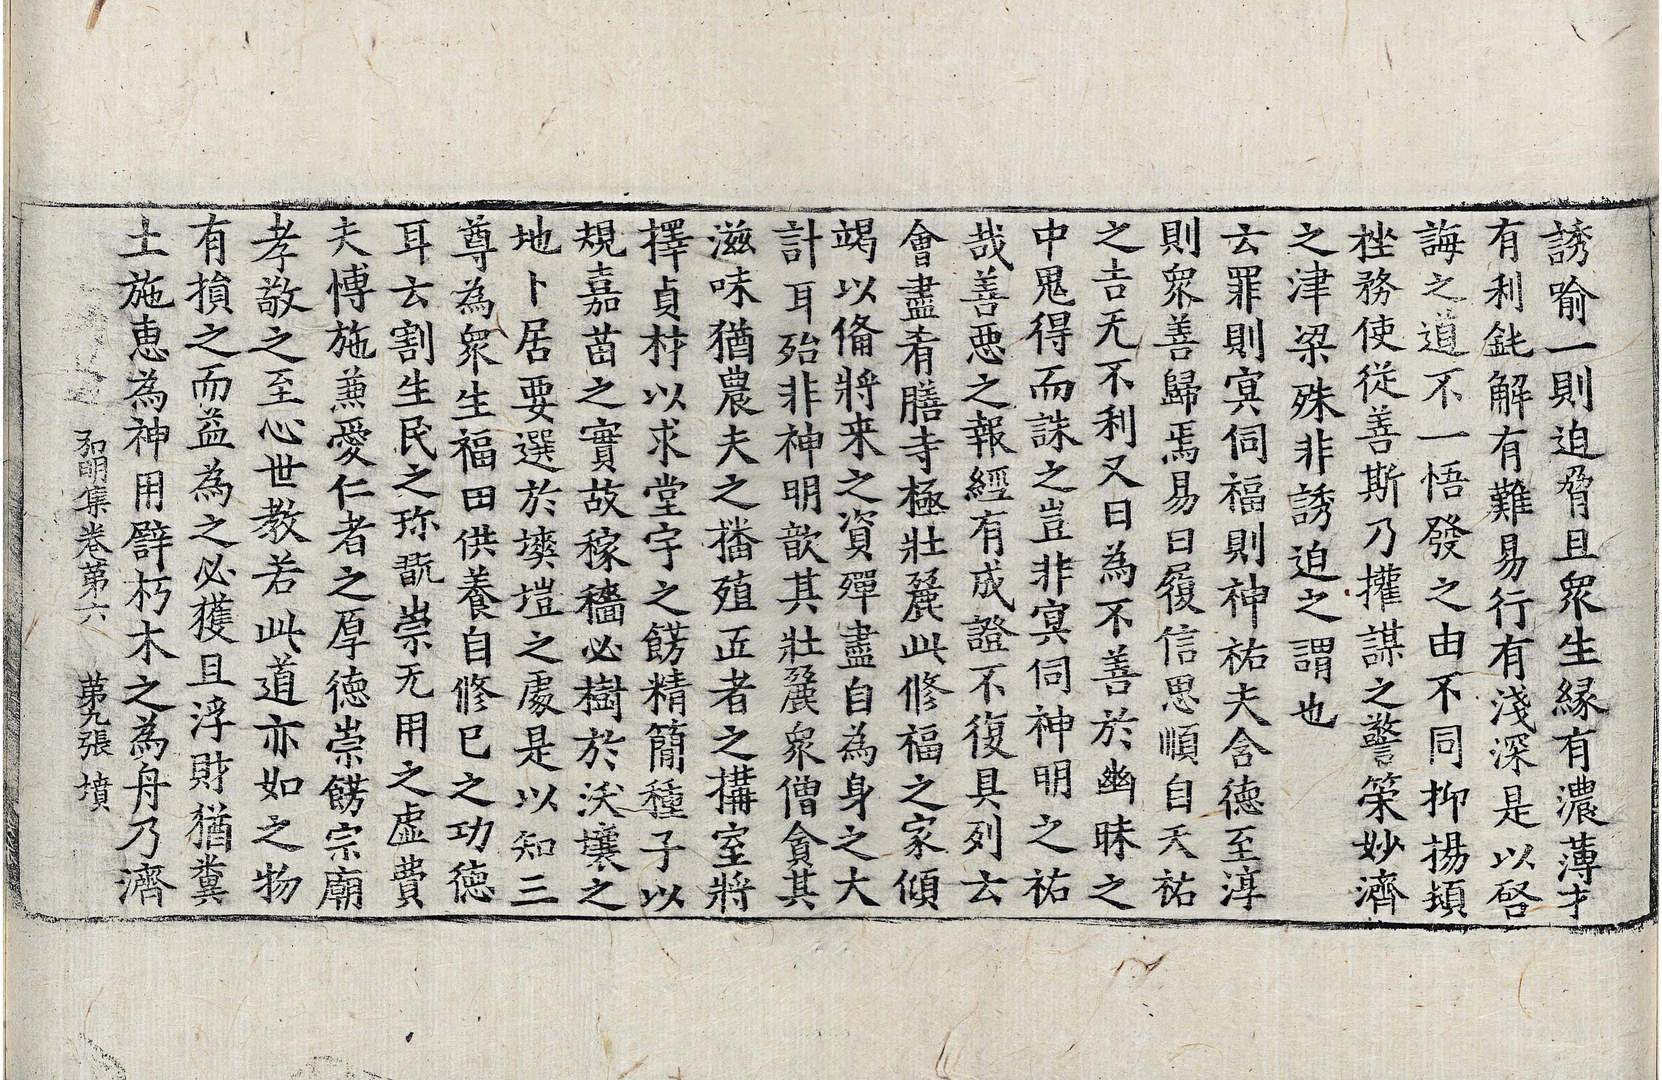 誘喻一則迫脅且衆生緣有濃薄才
有利鈍解有難易行有淺深是以啓
誨之道不一悟發之由不同抑揚頓
挫務使從善斯乃權謀之警策妙濟
之津梁殊非誘迫之謂也
云罪則冥伺福則神祐夫含德至淳
則衆善歸焉易曰履信思順自天祐
之吉无不利又曰為不善於幽昧之
中鬼得而誅之豈非冥伺神明之祐
哉善惡之報經有成證不復具列云
會盡肴膳寺極壯麗此修福之家傾
竭以俻將来之資殫盡自為身之大
計耳殆非神明歆其壯麗衆僧貪其
滋味猶農夫之播殖匠者之搆室將
擇貞材以求堂宇之餝精簡種子以
規嘉苗之實故稼穡必樹於沃壤之
地卜居要選於塽塏之處是以知三
尊為衆生福田供養自修已之功德
耳云割生民之珎翫崇无用之虛費
夫博施兼愛仁者之厚德崇餝宗廟
孝敬之至心世教若此道亦如之物
有損之而益為之必獲且浮財猶糞
土施恵為神用譬朽木之為舟乃濟
弘明集卷第六　第九張　墳